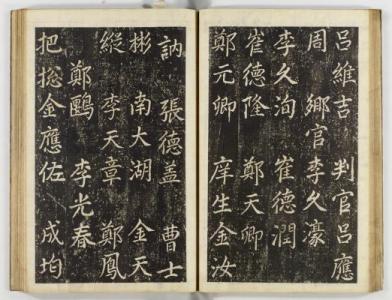 呂維吉 判官呂應
周 鄉官李久濠
李久洵 崔德潤
崔德隆 鄭天卿
鄭元卿 庠生金汝
訥 張德蓋 曹士
彬 南大湖 金天
縱 李天章 鄭鳳
鄭鷗 李光春
把摠金應佑 成均